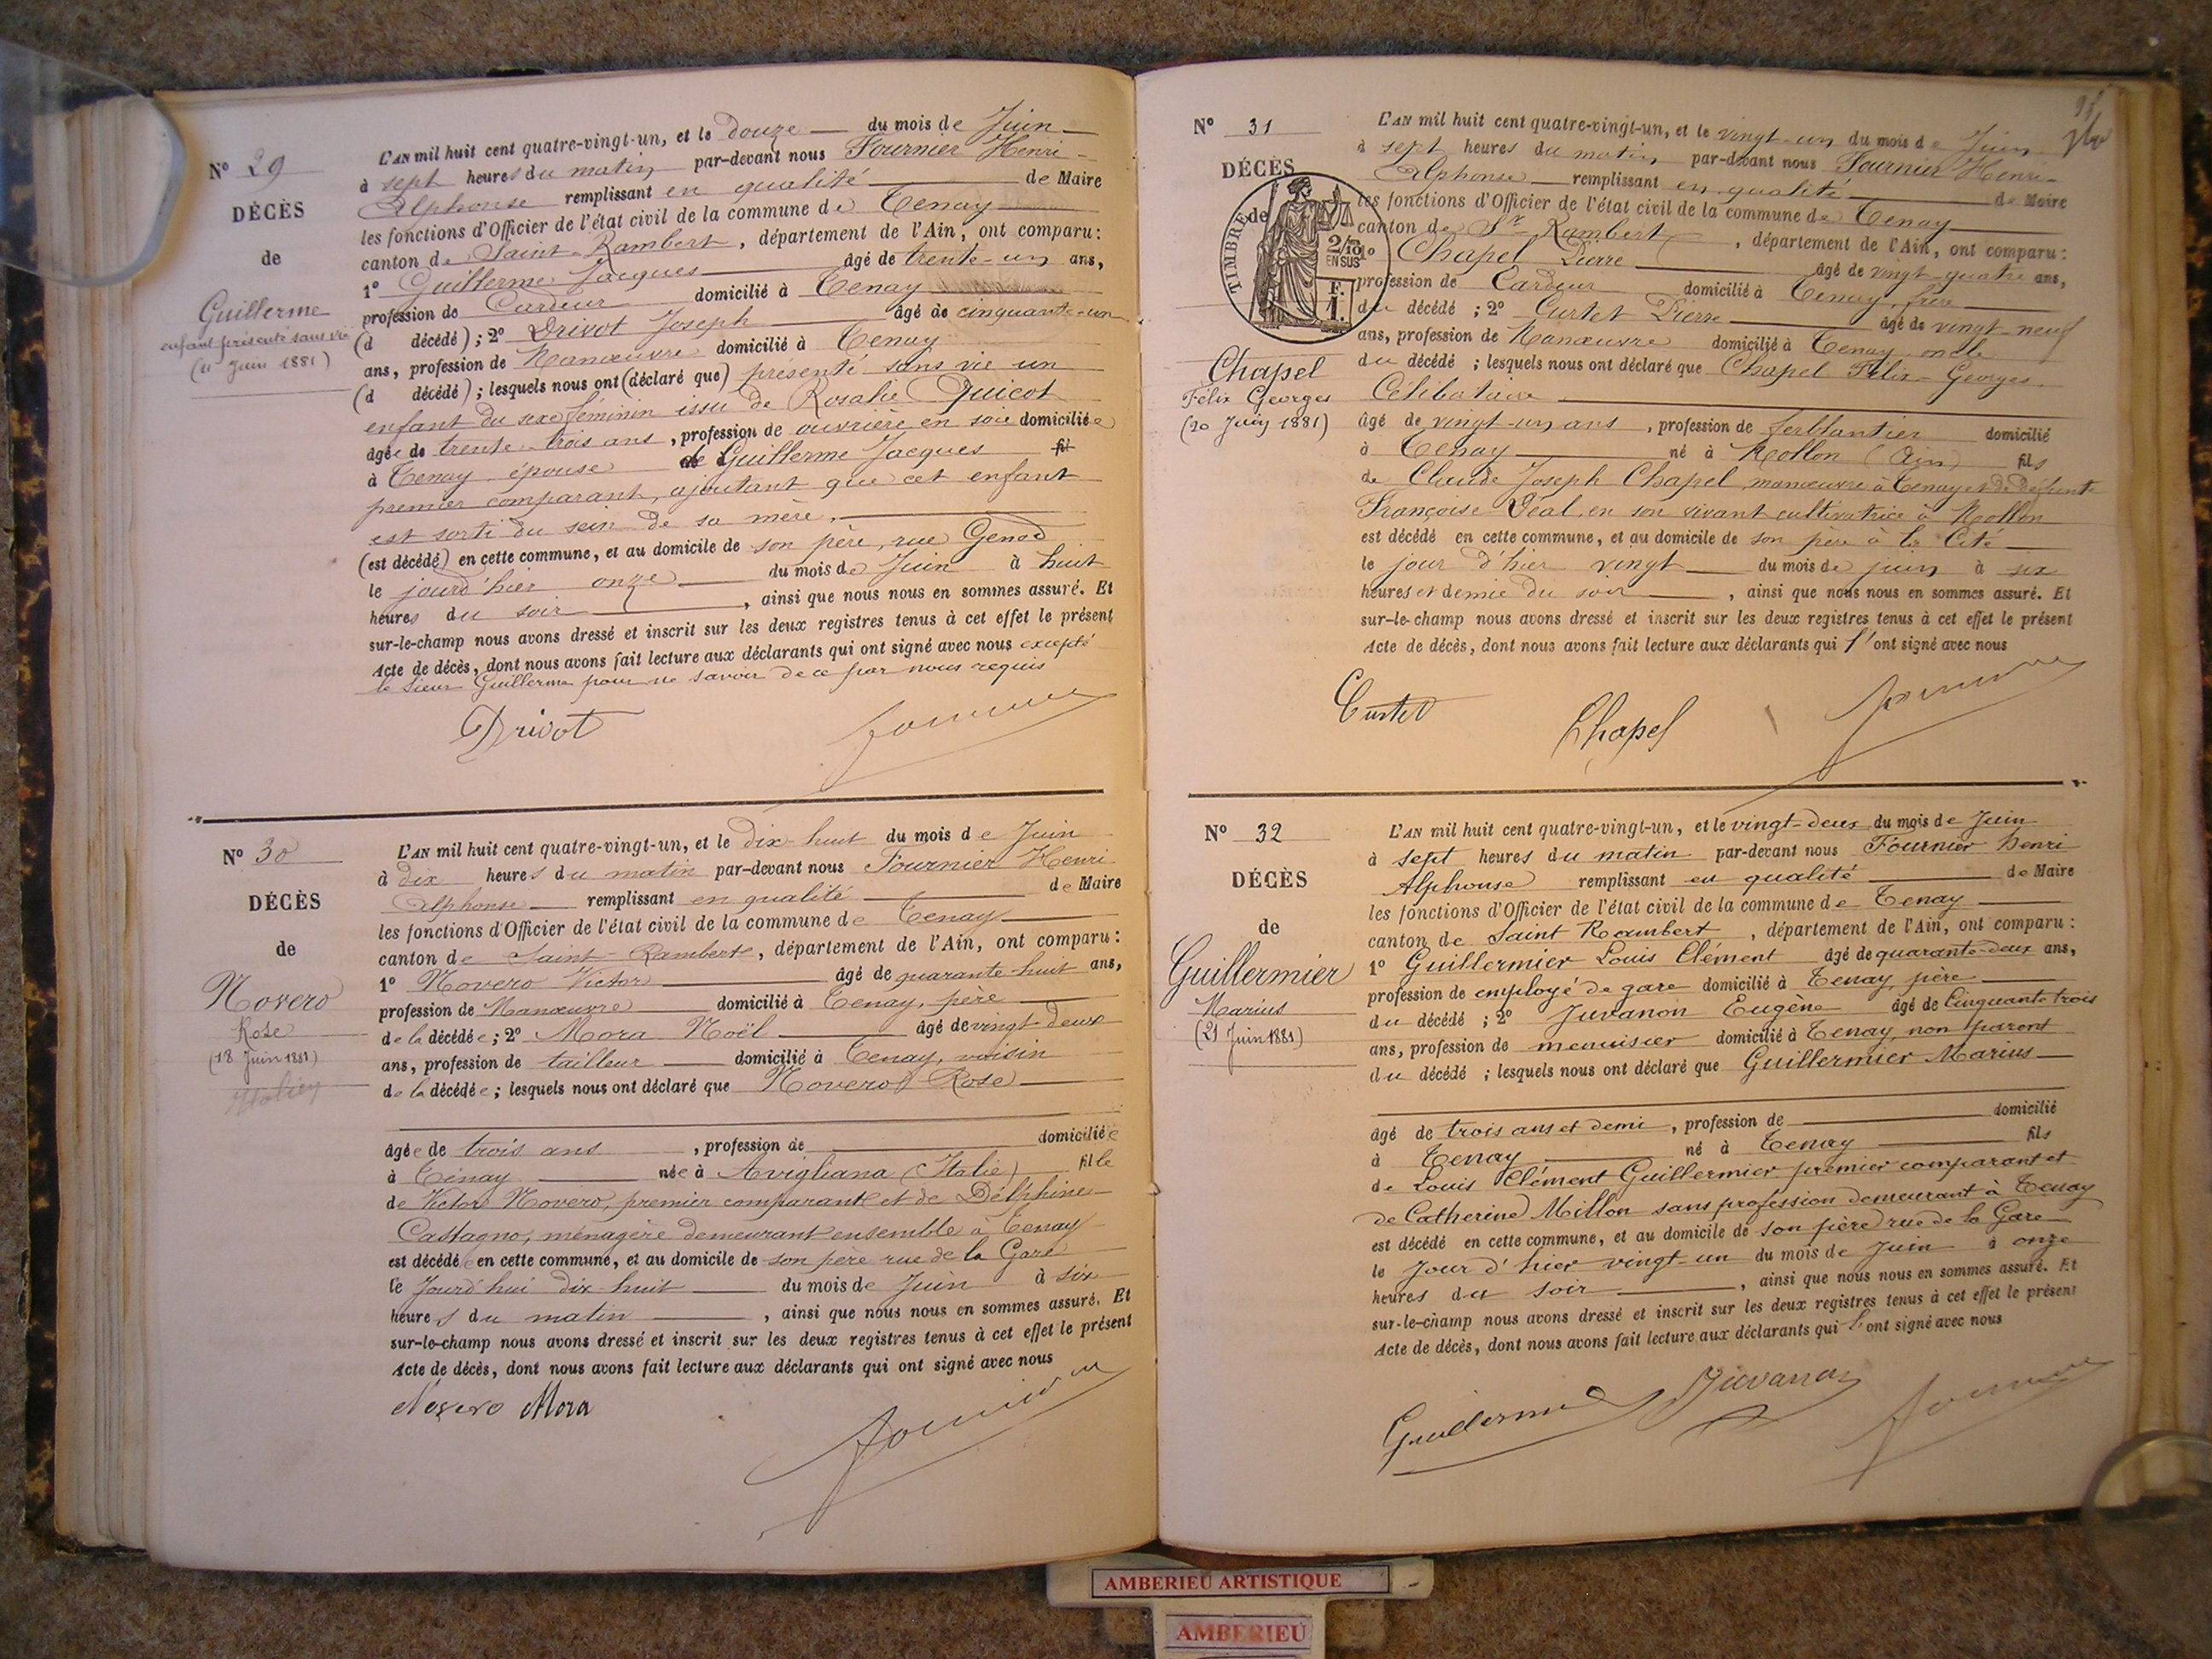 N° 29
DÉCÈS
de
Guillerme
enfant présenté sans vie
(11 Juin 1881)
L'AN mil huit cent quatre-vingt-un, et le douze du mois de Juin
à sept heures du matin par-devant nous Fournier Henri
Alphonse remplissant en qualité de Maire
les fonctions d'Officier de l'état civil de la commune de Tenay
canton de Saint-Rambert, département de l'Ain, ont comparu :
1° Guillerme Jacques âgé de trente-un ans,
profession de Cardeur domicilié à Tenay
(d décédé) ; 2° Drivot Joseph âgé de cinquante-un
ans, profession de Manœuvre domicilié à Tenay
(d décédé) ; lesquels nous ont (déclaré que) présenté sans vie un
enfant du sexe féminin issu de Rosalie Quicot
âgée de trente-trois ans, profession de ouvrière en soie domiciliée
à Tenay épouse de Guillerme Jacques fil
premier comparant, ajoutant que cet enfant
est sorti du sein de sa mère.
(est décédé) en cette commune, et au domicile de son père, rue Genod
le jourd'hier onze du mois de Juin à huit
heures du soir, ainsi que nous nous en sommes assuré. Et
sur-le-champ nous avons dressé et inscrit sur les deux registres tenus à cet effet le présent
Acte de décès, dont nous avons fait lecture aux déclarants qui ont signé avec nous excepté
le sieur Guillerme pour ne savoir de ce par nous requis
Drivot
N° 30
DÉCÈS
de
Novero
Rose
(18 Juin 1881)
L'AN mil huit cent quatre-vingt-un, et le dix-huit du mois de Juin
à dix heures du matin par-devant nous Fournier Henri
Alphonse remplissant en qualité de Maire
les fonctions d'Officier de l'état civil de la commune de Tenay
canton de Saint-Rambert, département de l'Ain, ont comparu :
1° Novero Victor âgé de quarante-huit ans,
profession de Manœuvre domicilié à Tenay, père
de la décédée ; 2° Mora Noël âgé de vingt-deux
ans, profession de tailleur domicilié à Tenay, voisin
de la décédée ; lesquels nous ont déclaré que Novero Rose
âgée de trois ans, profession de domiciliée
à Tenay née à Avigliana (Italie) fille
de Victor Novero, premier comparant et de Delphine
Castagno, ménagère demeurant ensemble à Tenay
est décédée en cette commune, et au domicile de son père rue de la Gare
le Jourd'hui dix-huit du mois de Juin à six
heures du matin, ainsi que nous nous en sommes assuré. Et
sur-le-champ nous avons dressé et inscrit sur les deux registres tenus à cet effet le présent
Acte de décès, dont nous avons fait lecture aux déclarants qui ont signé avec nous
Novero Mora
N° 31
DÉCÈS
de
TIMBRE
2/10
EN SUS
F.
1.
Chapel
Félix Georges
(20 Juin 1881)
L'AN mil huit cent quatre-vingt-un, et le vingt-un du mois de Juin
à sept heures du matin par-devant nous Fournier Henri
Alphonse remplissant en qualité de Maire
les fonctions d'Officier de l'état civil de la commune de Tenay
canton de St Rambert, département de l'Ain, ont comparu :
1° Chapel Pierre âgé de vingt-quatre ans,
profession de Cardeur domicilié à Tenay, frère
du décédé ; 2° Curtet Pierre âgé de vingt-neuf
ans, profession de Manœuvre domicilié à Tenay oncle
du décédé ; lesquels nous ont déclaré que Chapel Félix-Georges
Célibataire
âgé de vingt-un ans, profession de ferblantier domicilié
à Tenay né à Mollon (Ain) fils
de Claude Joseph Chapel manœuvre à Tenay et de défunte
Françoise Déal, en son vivant cultivatrice à Mollon
est décédé en cette commune, et au domicile de son père à la Cité
le jour d'hier vingt du mois de juin à six
heures et demie du soir, ainsi que nous nous en sommes assuré. Et
sur-le-champ nous avons dressé et inscrit sur les deux registres tenus à cet effet le présent
Acte de décès, dont nous avons fait lecture aux déclarants qui l'ont signé avec nous
Curtet Chapel
N° 32
DÉCÈS
de
Guillermier
Marius
(21 Juin 1881)
L'AN mil huit cent quatre-vingt-un, et le vingt-deux du mois de Juin
à sept heures du matin par-devant nous Fournier Henri
Alphonse remplissant en qualité de Maire
les fonctions d'Officier de l'état civil de la commune de Tenay
canton de Saint Rambert, département de l'Ain, ont comparu :
1° Guillermier Louis Clément âgé de quarante-deux ans,
profession de employé de gare domicilié à Tenay, père
du décédé ; 2° Juvanon Eugène âgé de Cinquante trois
ans, profession de menuisier domicilié à Tenay, non parent
du décédé ; lesquels nous ont déclaré que Guillermier Marius
âgé de trois ans et demi, profession de domicilié
à Tenay né à Tenay fils
de Louis Clément Guillermier premier comparant et
de Catherine Millon sans profession demeurant à Tenay
est décédé en cette commune, et au domicile de son père rue de la Gare
le Jour d'hier vingt-un du mois de Juin à onze
heures du soir, ainsi que nous nous en sommes assuré. Et
sur-le-champ nous avons dressé et inscrit sur les deux registres tenus à cet effet le présent
Acte de décès, dont nous avons fait lecture aux déclarants qui l'ont signé avec nous
Guillermier Juvanon
AMBERIEU ARTISTIQUE
AMBERIEU